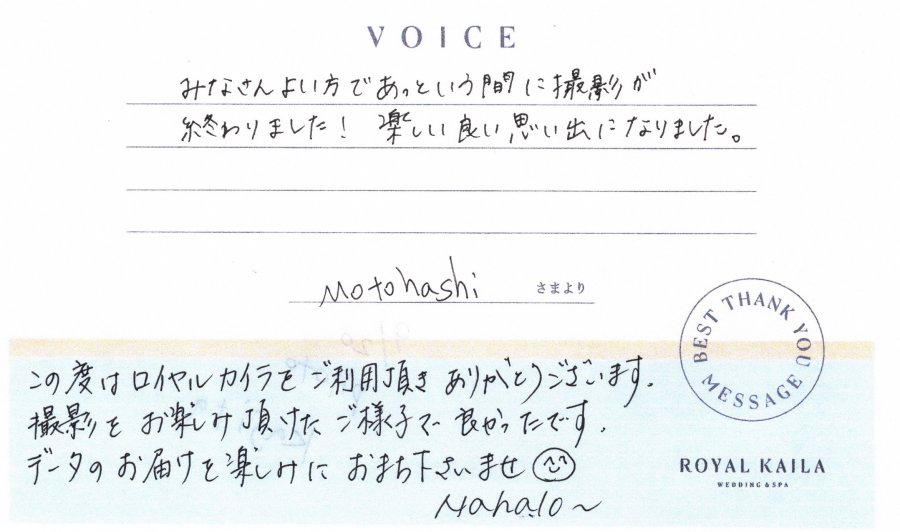 VOICE
みなさんよい方であっという間に撮影が
終わりました！ 楽しい良い思い出になりました。
Motohashi さまより
BEST THANK YOU MESSAGE
この度はロイヤルカイラをご利用頂き ありがとうございます.
撮影を お楽しみ頂けた ご様子で 良かったです.
データのお届けを楽しみに おまち下さいませ
Mahalo~
ROYAL KAILA
WEDDING & SPA